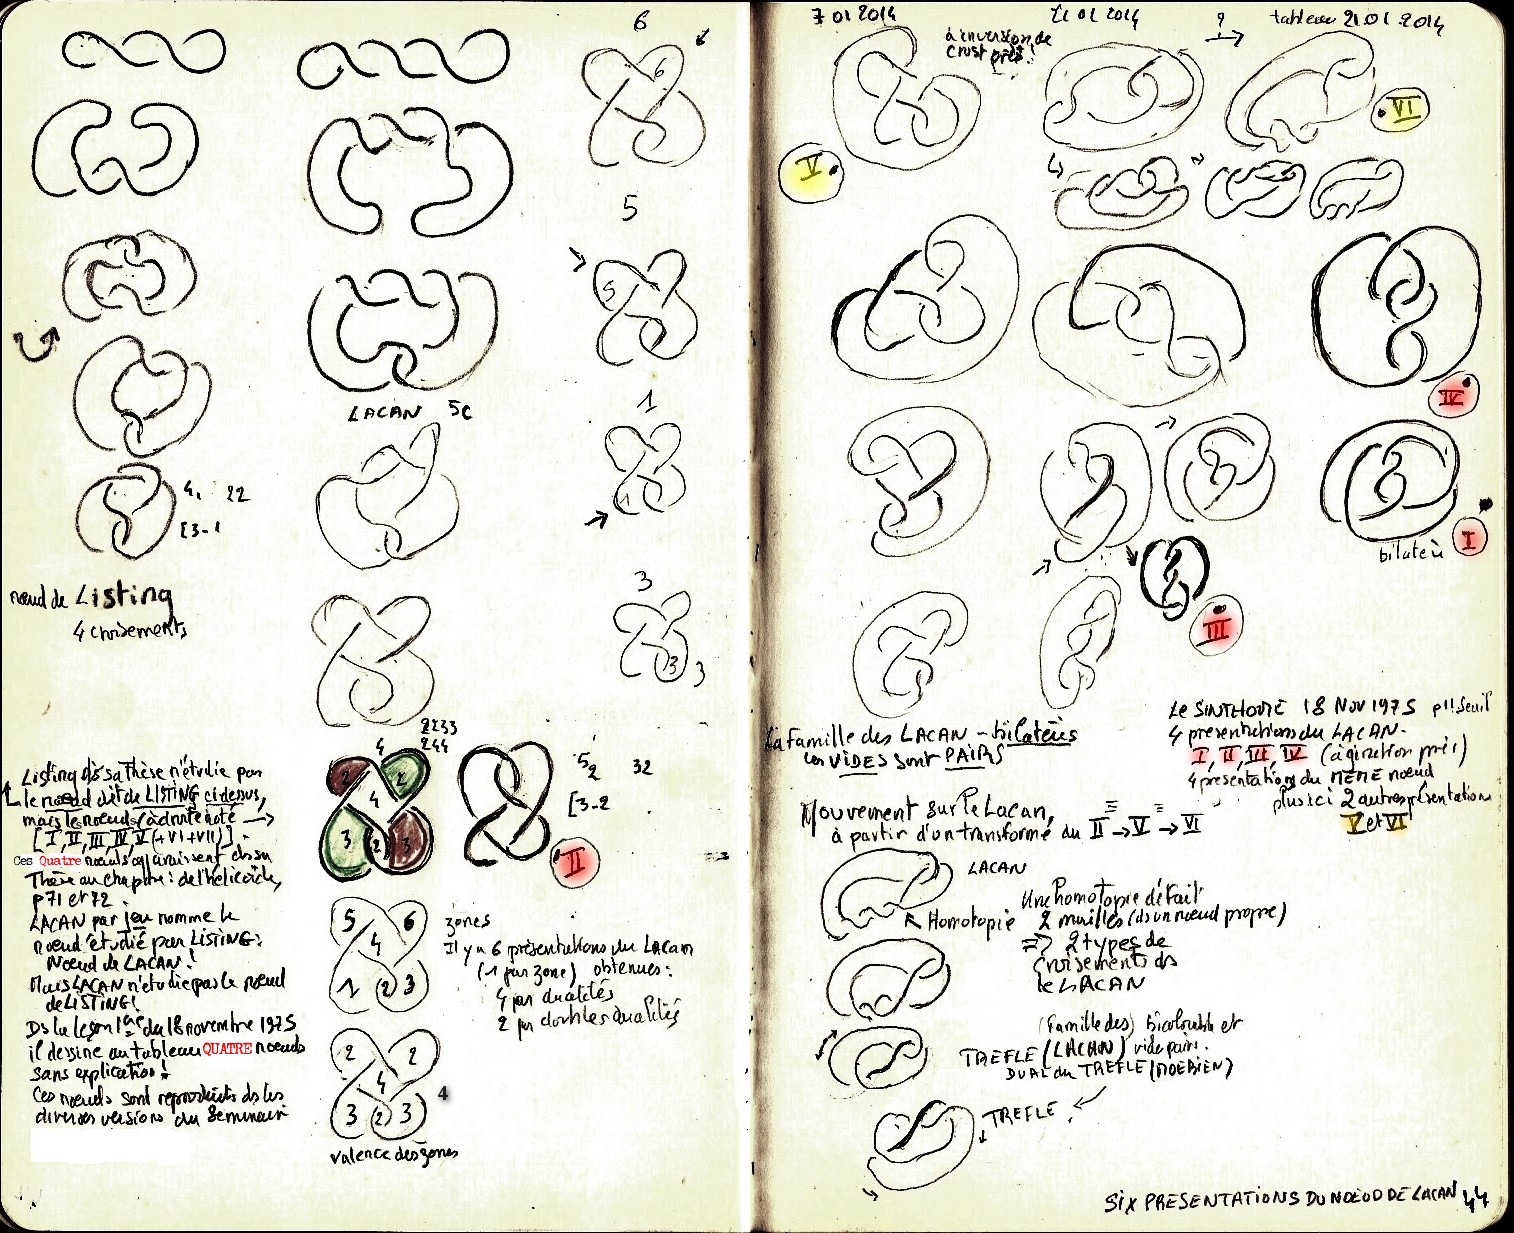 6
6
5
5
LACAN 5c
1
1
4, 22
[3-1
nœud de Listing
4 croisements
3
3
3
2233
244
4
2
2
4
3
2
3
5
2
32
[3-2
II
Listing ds sa Thèse n'étudie pas
le nœud dit de LISTING ci dessus,
mais le nœud (à droite noté →
[I, II, III, IV, V (+VI+VII)].
Ces Quatre nœuds apparaissent ds sa
Thèse au chapitre: de l'hélicoïde,
p71 et 72.
LACAN par jeu nomme le
nœud étudié par LISTING:
Nœud de LACAN!
Mais LACAN n'étudie pas le nœud
de LISTING!
Ds la leçon 1ère du 18 novembre 1975
il dessine au tableau QUATRE nœuds
sans explication!
Ces nœuds sont reproduits ds les
diverses versions du Séminaire
5
6
4
1
2
3
zones
Il y a 6 présentations du Lacan
(1 par zone) obtenues:
4 par dualités
2 par doubles dualités
2
2
4
3
2
3
4
valence des zones
7 01 2014
21 01 2014
?
tableau 21.01.2014
à inversion de
près!
VI
V
IV
bilatère
I
III
La Famille des LACAN - bilatères
Les VIDES sont PAIRS
Le SINTHOME 18 NOV 1975 p11 Seuil
4 présentations du LACAN.
I, II, III, IV (à giration près)
4 présentations du MÊME nœud
plus ici 2 autres présentations
V et VI
Mouvement sur le Lacan,
à partir d'un transformé du II → V → VI
LACAN
Homotopie
Une homotopie défait
2 mailles (ds un nœud propre)
=> 2 types de
croisements ds
le LACAN
(Famille des) bicolorable et
TREFLE (LACAN) vide pair.
DUAL du TREFLE (MOEBIEN)
TREFLE
SIX PRESENTATIONS DU NOEUD DE LACAN 44